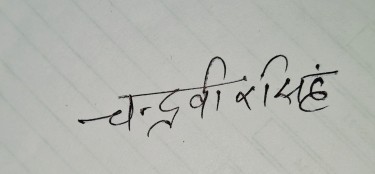 चन्द्रवीरसिंह